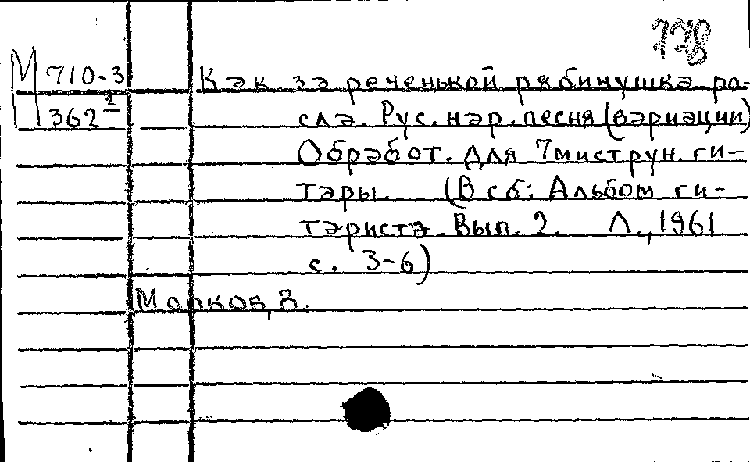 778
М 710-3
362 2
Как за реченькой рябинушка ро-
сла. Рус. нар. песня (вариации)
Обработ. для 7миструн. ги-
тары. (В сб: Альбом ги-
тариста. Вып. 2. Л., 1961
с. 3-6)
В.